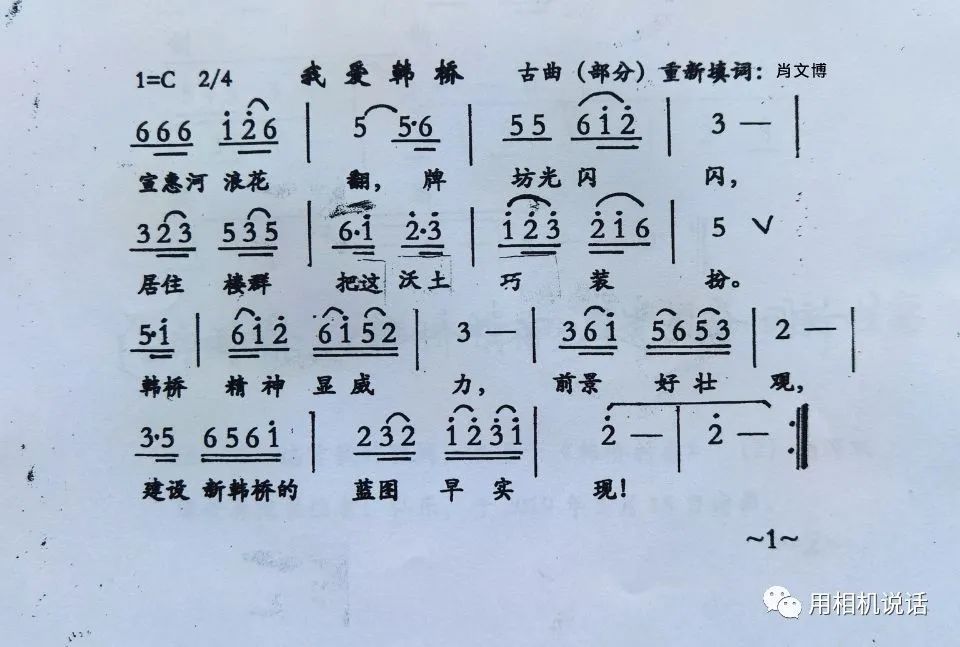 1=C 2/4 我爱韩桥 古曲（部分）重新填词：肖文博
666 i̇2̇6 | 5 5·6 | 55 61̇2̇ | 3 — |
宣惠河 浪花 翻， 牌 坊光 闪 闪，
323 535 | 6·1̇ 2̇·3̇ | 1̇2̇3̇ 2̇1̇6 | 5 ∨
居住 楼群 把这 沃土 巧 装 扮。
5·1̇ | 61̇2̇ 61̇52 | 3 — | 361̇ 5653 | 2 — |
韩桥 精神 显威 力， 前景 好壮 观，
3·5 6561̇ | 232 1̇2̇3̇1̇ | 2̇ — | 2̇ — :‖
建设 新韩桥的 蓝图 早 实 现！
~1~
用相机说话